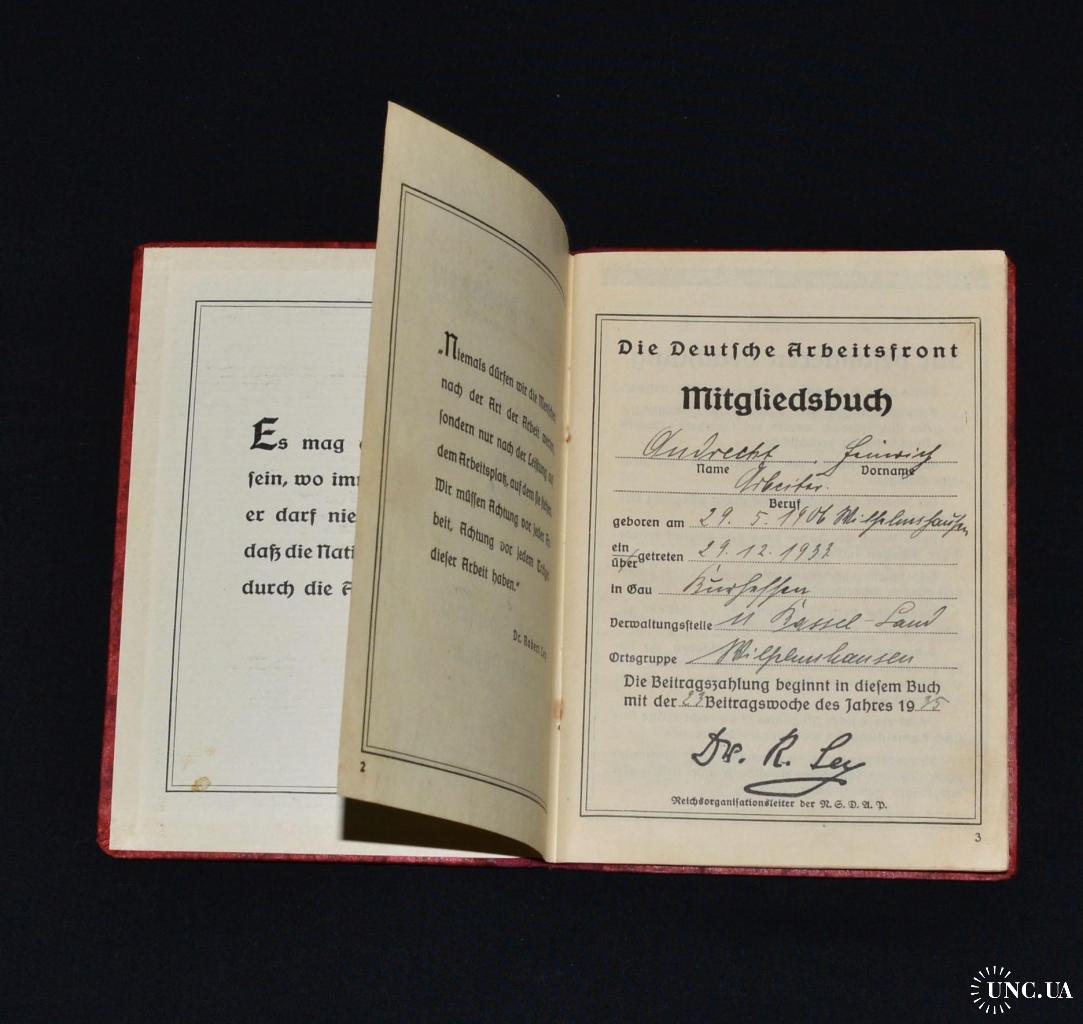 Es mag
sein, wo
er darf nie
daß die Nati
durch die
„Niemals dürfen wir die Menschen
nach der Art der Arbeit werten,
sondern nur nach der Leistung auf
dem Arbeitsplatz, auf dem sie stehen.
Wir müssen Achtung vor jeder Ar-
beit, Achtung vor jedem Träger
dieser Arbeit haben."
Dr. Robert Ley
2
Die Deutsche Arbeitsfront
Mitgliedsbuch
Heinrich
Name Vorname
Arbeiter.
Beruf
geboren am 29. 5. 1906 Wilhelmshausen
ein
über getreten 29. 12. 1933
in Gau Kurhessen
Verwaltungsstelle 11 Kassel-Land
Ortsgruppe Wilhelmshausen
Die Beitragszahlung beginnt in diesem Buch
mit der 23 Beitragswoche des Jahres 1935
Dr. R. Ley
Reichsorganisationsleiter der N. S. D. A. P.
3
UNC.UA